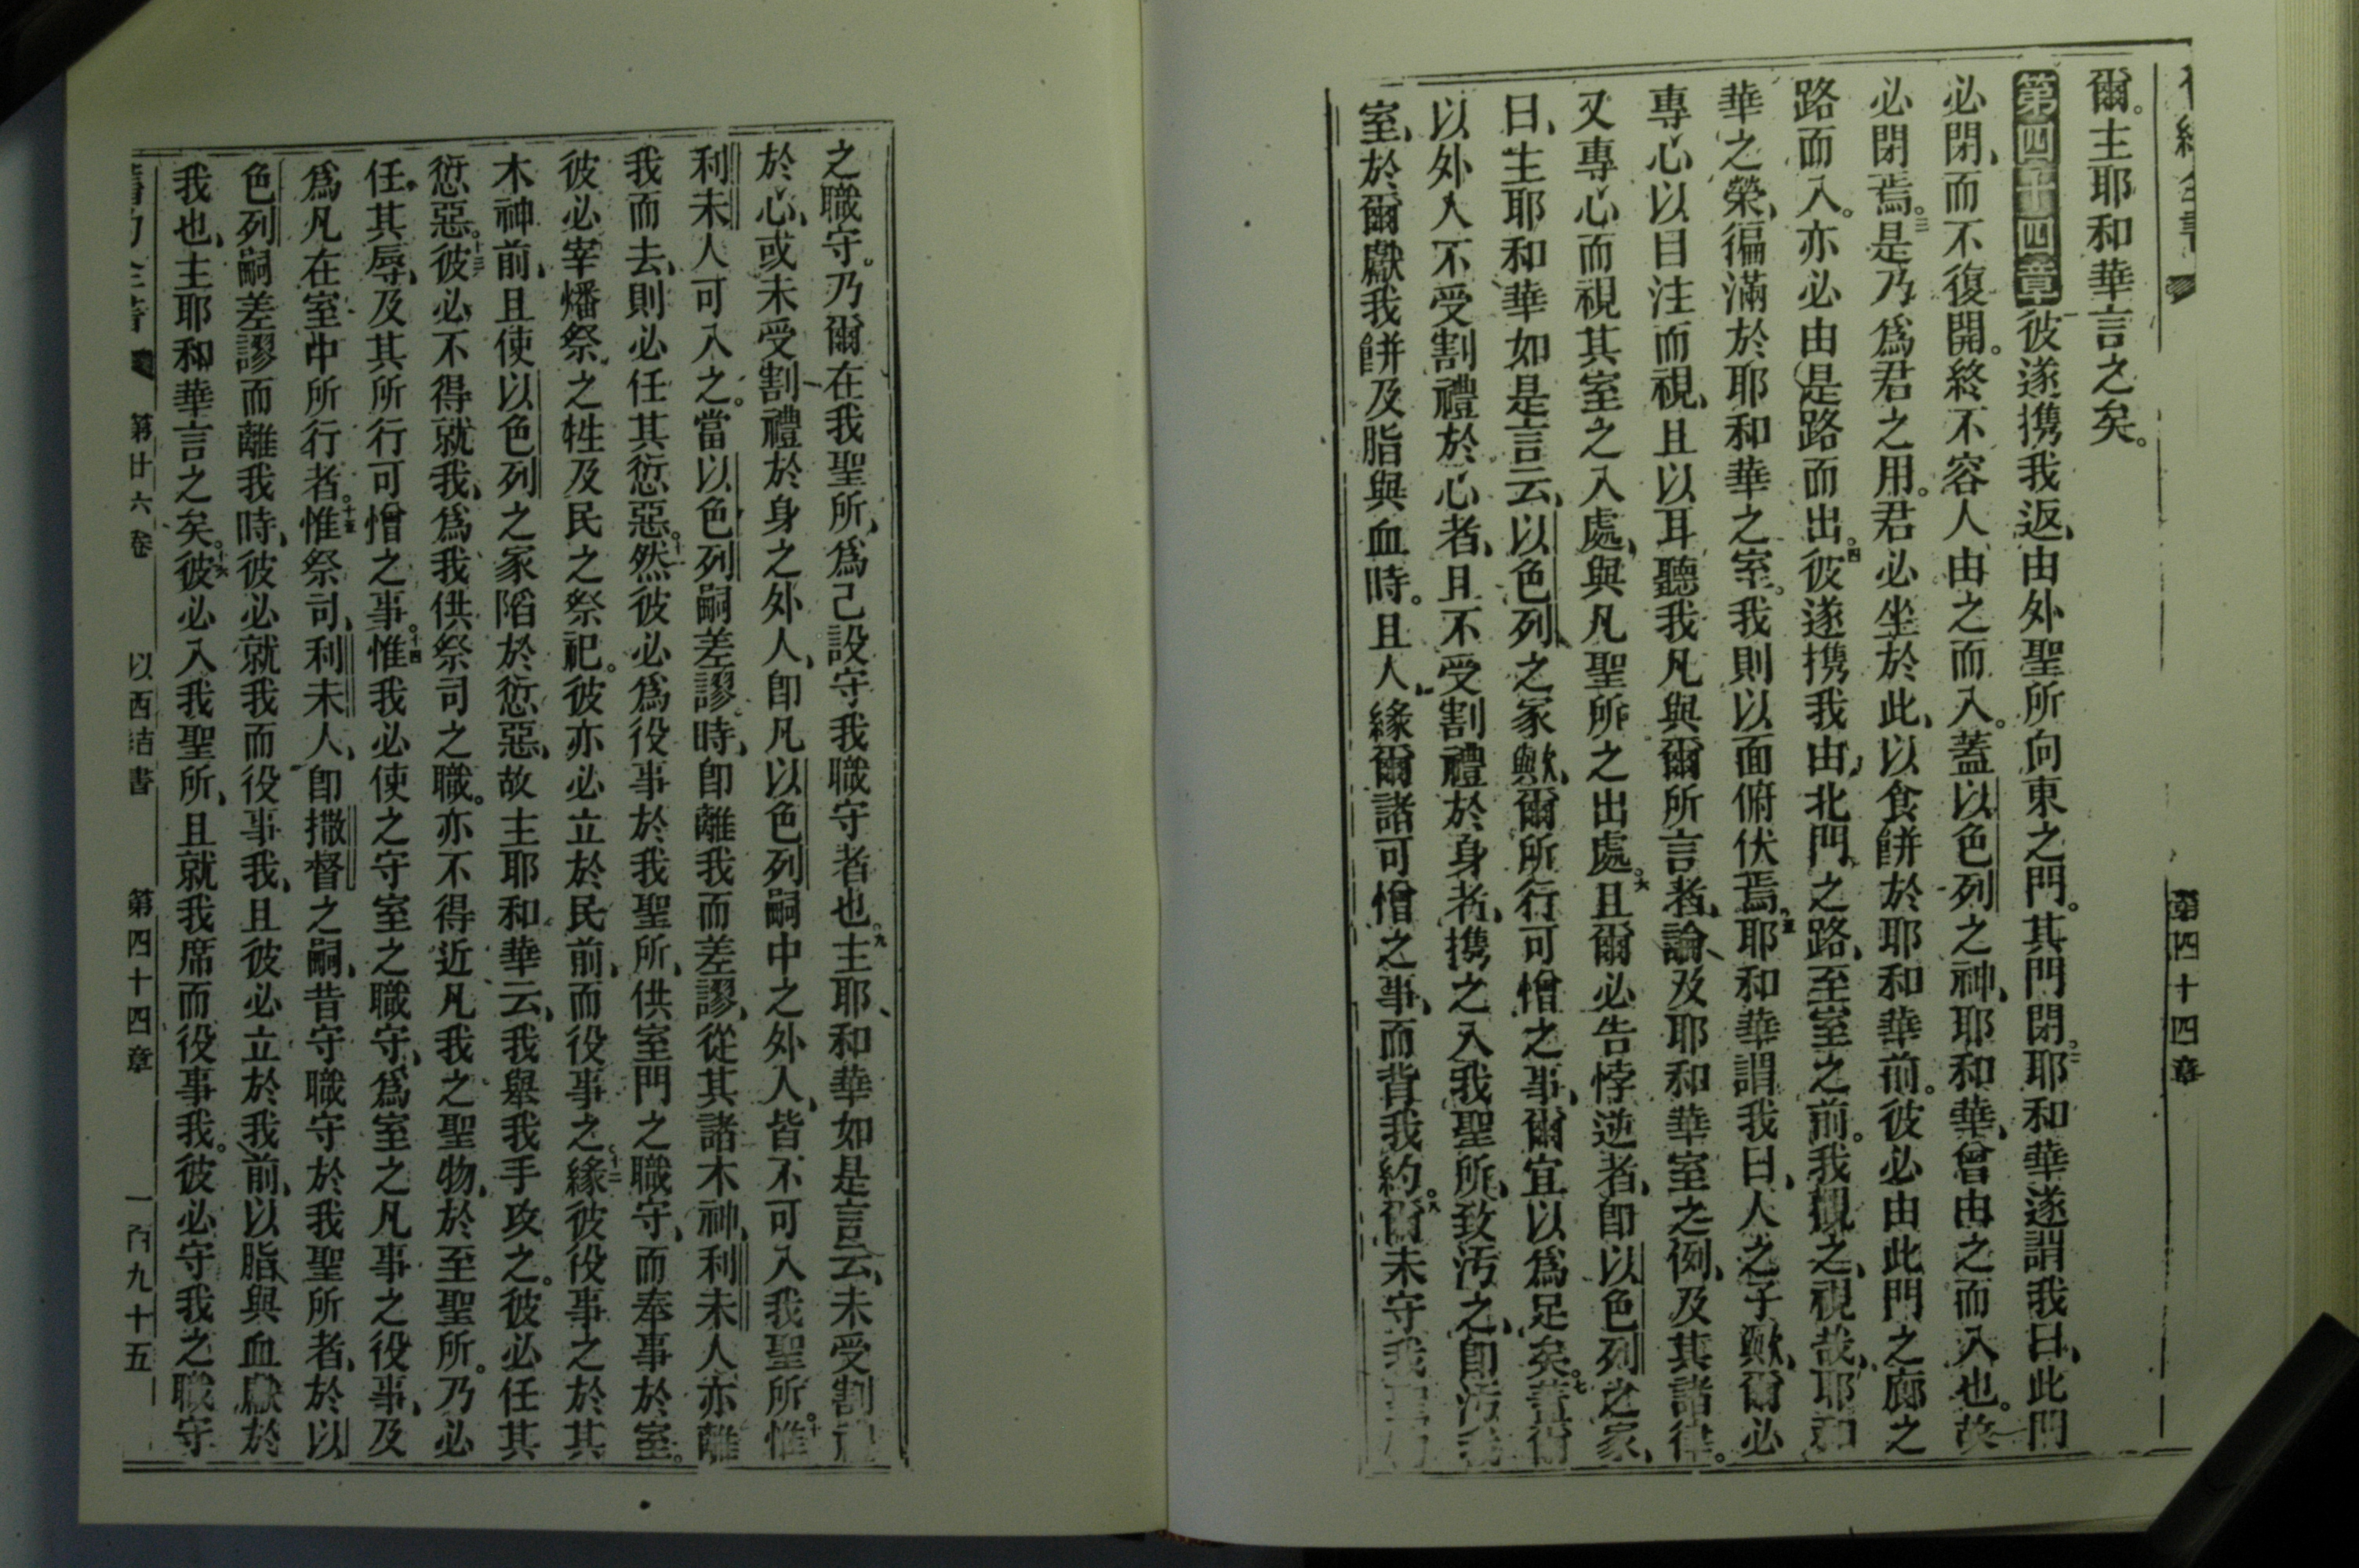 第四十四章
爾。主耶和華言之矣。
第四十四章彼遂携我返、由外聖所向東之門。其門閉。二耶和華遂謂我曰、此門
必閉、而不復開。終不容人由之而入。蓋以色列之神、耶和華、曾由之而入也。故
必閉焉。三是乃爲君之用。君必坐於此、以食餅於耶和華前。彼必由此門之廊之
路而入。亦必由是路而出。四彼遂携我由北門之路、至室之前。我觀之、視哉、耶和
華之榮、徧滿於耶和華之室。我則以面俯伏焉。五耶和華謂我曰、人之子歟、爾必
專心以目注而視、且以耳聽我凡與爾所言者、論及耶和華室之例、及其諸律。
又專心而視其室之入處、與凡聖所之出處。六且爾必告悖逆者、卽以色列之家、
曰、主耶和華如是言云、以色列之家歟、爾所行可憎之事、爾宜以爲足矣。七蓋爾
以外人不受割禮於心者、且不受割禮於身者、携之入我聖所、致汚之、卽汚我
室、於爾獻我餅及脂與血時。且人緣爾諸可憎之事、而背我約。八爾未守我
之職守。乃爾在我聖所、爲己設守我職守者也。九主耶和華如是言云、未受割禮
於心、或未受割禮於身之外人、卽凡以色列嗣中之外人、皆不可入我聖所。十惟
利未人可入之。當以色列嗣差謬時、卽離我而差謬、從其諸木神、利未人亦離
我而去、則必任其愆惡。十一然彼必爲役事於我聖所、供室門之職守、而奉事於室。
彼必宰燔祭之牲及民之祭祀。彼亦必立於民前、而役事之。十二緣彼役事之於其
木神前、且使以色列之家陷於愆惡、故主耶和華云、我舉我手攻之。彼必任其
愆惡。十三彼必不得就我、爲我供祭司之職。亦不得近凡我之聖物、於至聖所。乃必
任其辱、及其所行可憎之事。十四惟我必使之守室之職守、爲室之凡事之役事、及
爲凡在室中所行者。十五惟祭司、利未人、卽撒督之嗣、昔守職守於我聖所者、於以
色列嗣差謬而離我時、彼必就我而役事我、且彼必立於我前、以脂與血獻於
我也、主耶和華言之矣。十六彼必入我聖所、且就我席而役事我。彼必守我之職守
第廿六卷 以西結書 第四十四章 一百九十五